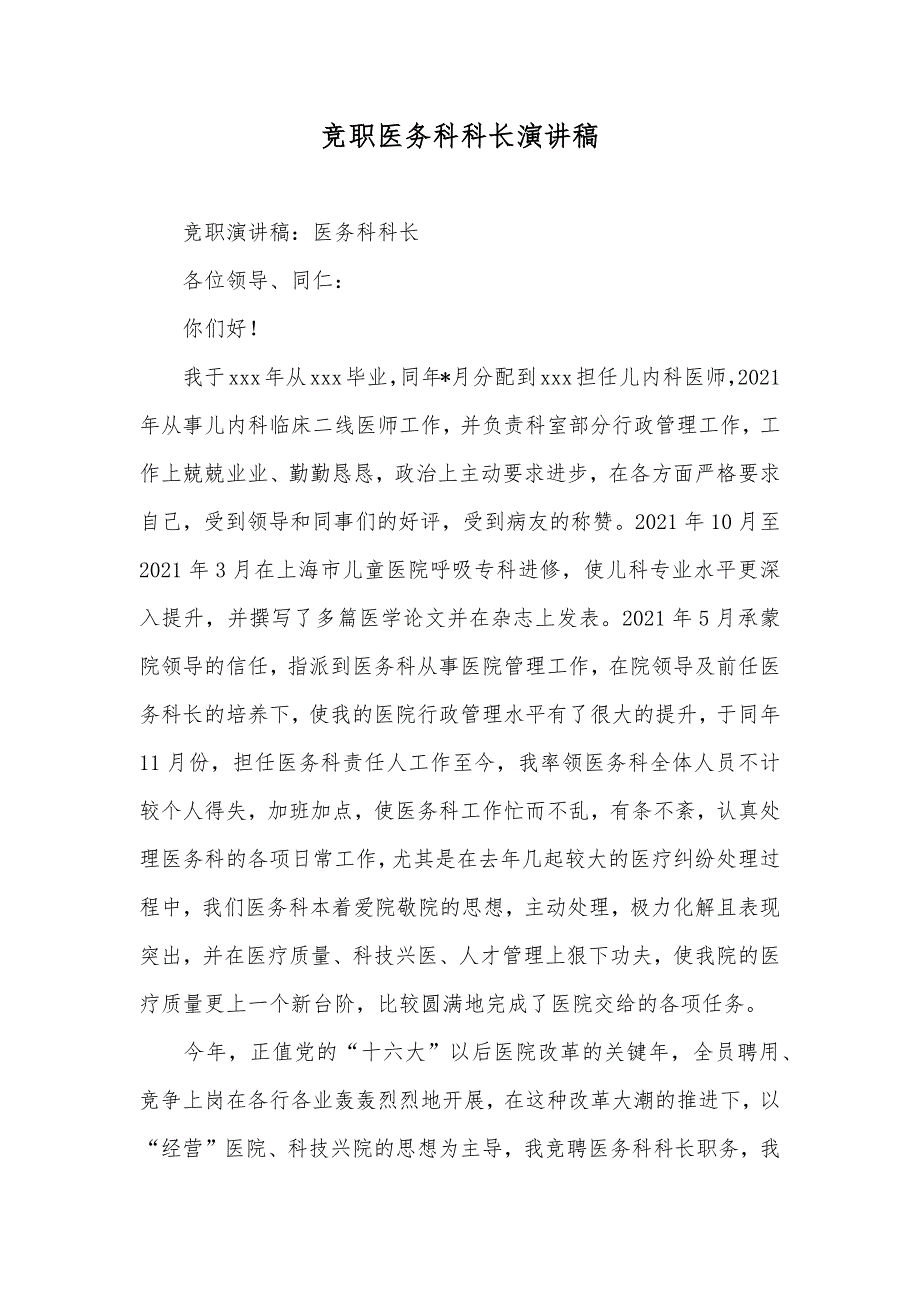 竞职医务科科长演讲稿
竞职演讲稿：医务科科长
各位领导、同仁：
你们好！
我于 xxx 年从 xxx 毕业，同年*月分配到 xxx 担任儿内科医师，2021
年从事儿内科临床二线医师工作，并负责科室部分行政管理工作，工
作上兢兢业业、勤勤恳恳，政治上主动要求进步，在各方面严格要求
自己，受到领导和同事们的好评，受到病友的称赞。2021 年 10 月至
2021 年 3 月在上海市儿童医院呼吸专科进修，使儿科专业水平更深
入提升，并撰写了多篇医学论文并在杂志上发表。2021 年 5 月承蒙
院领导的信任，指派到医务科从事医院管理工作，在院领导及前任医
务科长的培养下，使我的医院行政管理水平有了很大的提升，于同年
11 月份，担任医务科责任人工作至今，我率领医务科全体人员不计
较个人得失，加班加点，使医务科工作忙而不乱，有条不紊，认真处
理医务科的各项日常工作，尤其是在去年几起较大的医疗纠纷处理过
程中，我们医务科本着爱院敬院的思想，主动处理，极力化解且表现
突出，并在医疗质量、科技兴医、人才管理上狠下功夫，使我院的医
疗质量更上一个新台阶，比较圆满地完成了医院交给的各项任务。
今年，正值党的“十六大”以后医院改革的关键年，全员聘用、
竞争上岗在各行各业轰轰烈烈地开展，在这种改革大潮的推进下，以
“经营”医院、科技兴院的思想为主导，我竞聘医务科科长职务，我